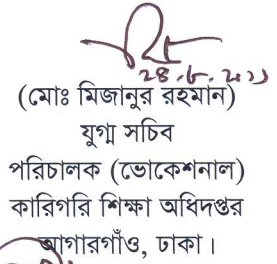 (মোঃ মিজানুর রহমান)
যুগ্ম সচিব
পরিচালক (ভোকেশনাল)
কারিগরি শিক্ষা অধিদপ্তর
আগারগাঁও, ঢাকা।